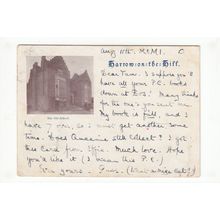 Aug 11th. MCMI.
Harrow-on-the-Hill.
Dear Tum. I suppose you'll
have all your P.C. books
down at Ro! Many thanks
for the's you sent me
My book is full, and I
have 7 over, so I must get another some
time. Does Queenie still collect? I got
this Card from Stoie. Much love. Hope
you'll like it (I mean this P.C.)
The Old School.
yours.